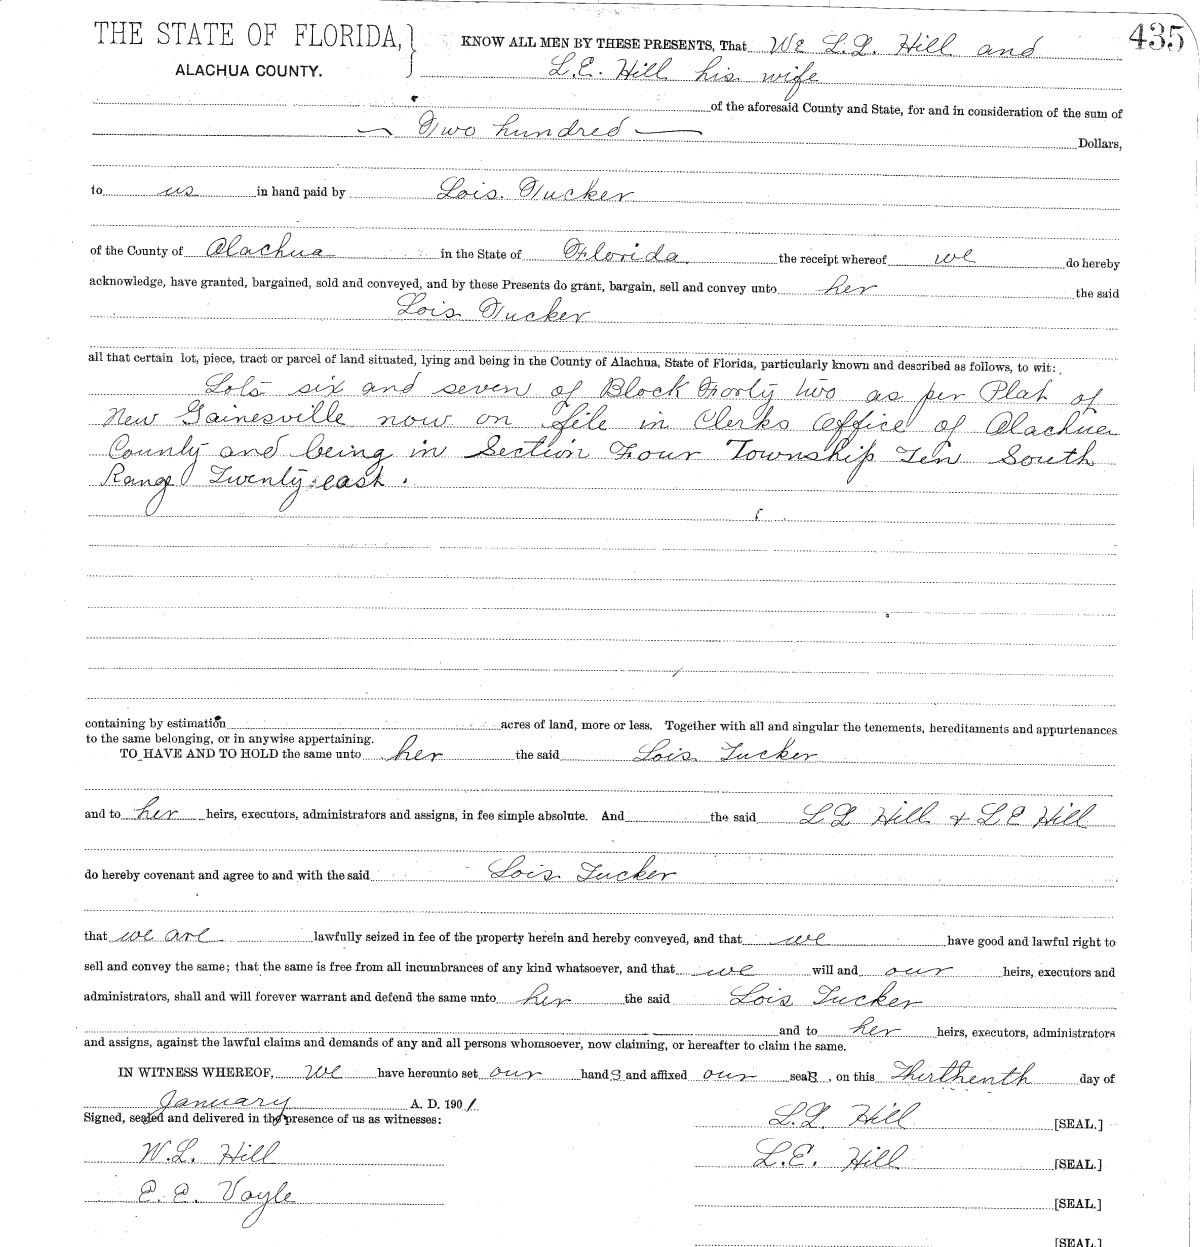 435
THE STATE OF FLORIDA,
ALACHUA COUNTY.
KNOW ALL MEN BY THESE PRESENTS, That We L.L. Hill and
L.E. Hill his wife
of the aforesaid County and State, for and in consideration of the sum of
Two hundred Dollars,
to us in hand paid by Lois. Tucker
of the County of Alachua in the State of Florida the receipt whereof we do hereby
acknowledge, have granted, bargained, sold and conveyed, and by these Presents do grant, bargain, sell and convey unto her the said
Lois Tucker
all that certain lot, piece, tract or parcel of land situated, lying and being in the County of Alachua, State of Florida, particularly known and described as follows, to wit:
Lots six and seven of Block Forty two as per Plat of
New Gainesville now on file in Clerks Office of Alachua
County and being in Section Four Township Ten South
Range Twenty east.
containing by estimation acres of land, more or less. Together with all and singular the tenements, hereditaments and appurtenances
to the same belonging, or in anywise appertaining.
TO HAVE AND TO HOLD the same unto her the said Lois Tucker
and to her heirs, executors, administrators and assigns, in fee simple absolute. And the said L L Hill & L E Hill
do hereby covenant and agree to and with the said Lois Tucker
that we are lawfully seized in fee of the property herein and hereby conveyed, and that we have good and lawful right to
sell and convey the same; that the same is free from all incumbrances of any kind whatsoever, and that we will and our heirs, executors and
administrators, shall and will forever warrant and defend the same unto her the said Lois Tucker
and to her heirs, executors, administrators
and assigns, against the lawful claims and demands of any and all persons whomsoever, now claiming, or hereafter to claim the same.
IN WITNESS WHEREOF, we have hereunto set our hands and affixed our seals, on this Thirthenth day of
January A. D. 1901
Signed, sealed and delivered in the presence of us as witnesses:
L.L. Hill [SEAL.]
W.L. Hill
L.E. Hill [SEAL.]
E. E. Voyle
[SEAL.]
[SEAL.]